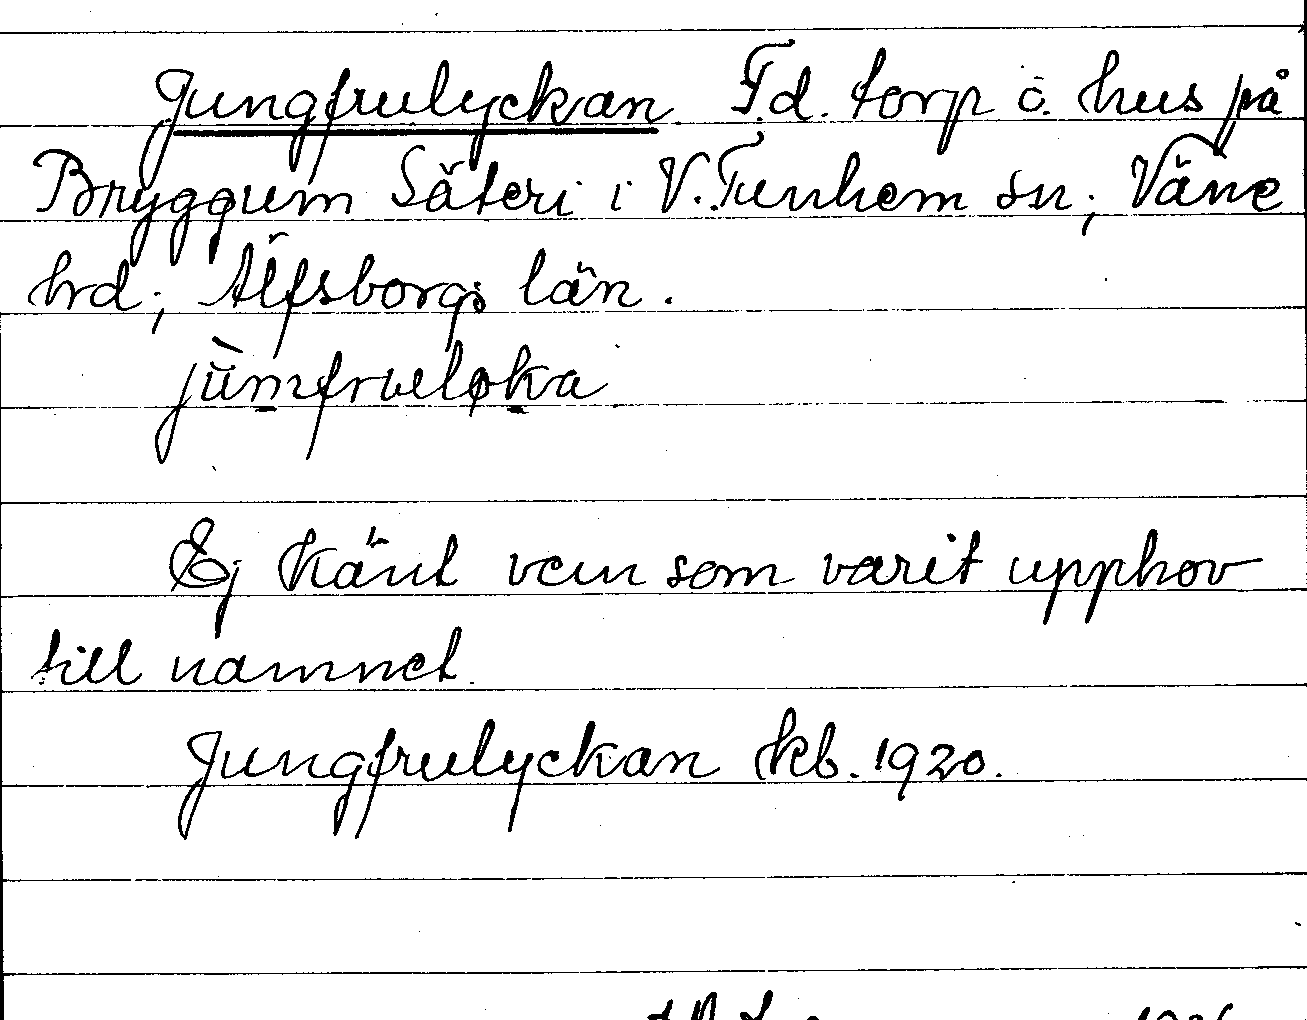 Jungfrulyckan. F.d. torp o. hus på
Bryggum Säteri i V. Tunhem sn; Väne
hrd; Älfsborgs län.
Ej känt vem som varit upphov
till namnet.
Jungfrulyckan kb. 1920.